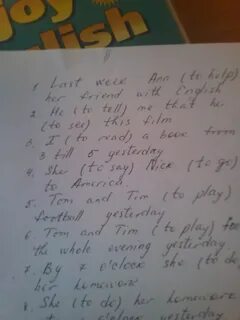 joy
glish
1. Last week Ann (to help)
her friend with English
2. He (to tell) me that he
(to see) this film
3. I (to read) a book from
3 till 5 yesterday
4. She (to say) Nick (to go)
to America
5. Tom and Tim (to play)
football yesterday
6. Tom and Tim (to play)
the whole evening yesterday
7. By 7 o'clock she (to do)
her homework
8. She (to do) her homework
yesterday